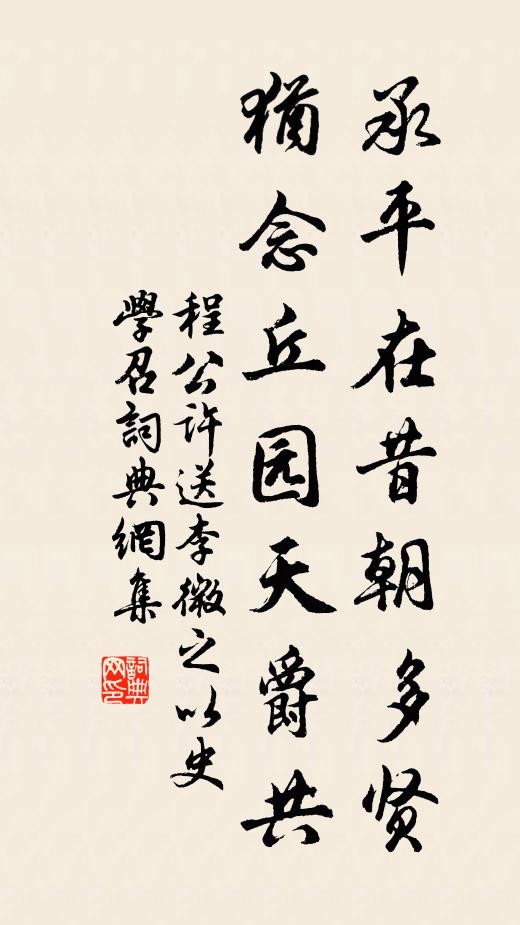 承平在昔朝多贤
犹念丘园天爵共
程公许送李微之以史
學召詞典網集
詞典网印